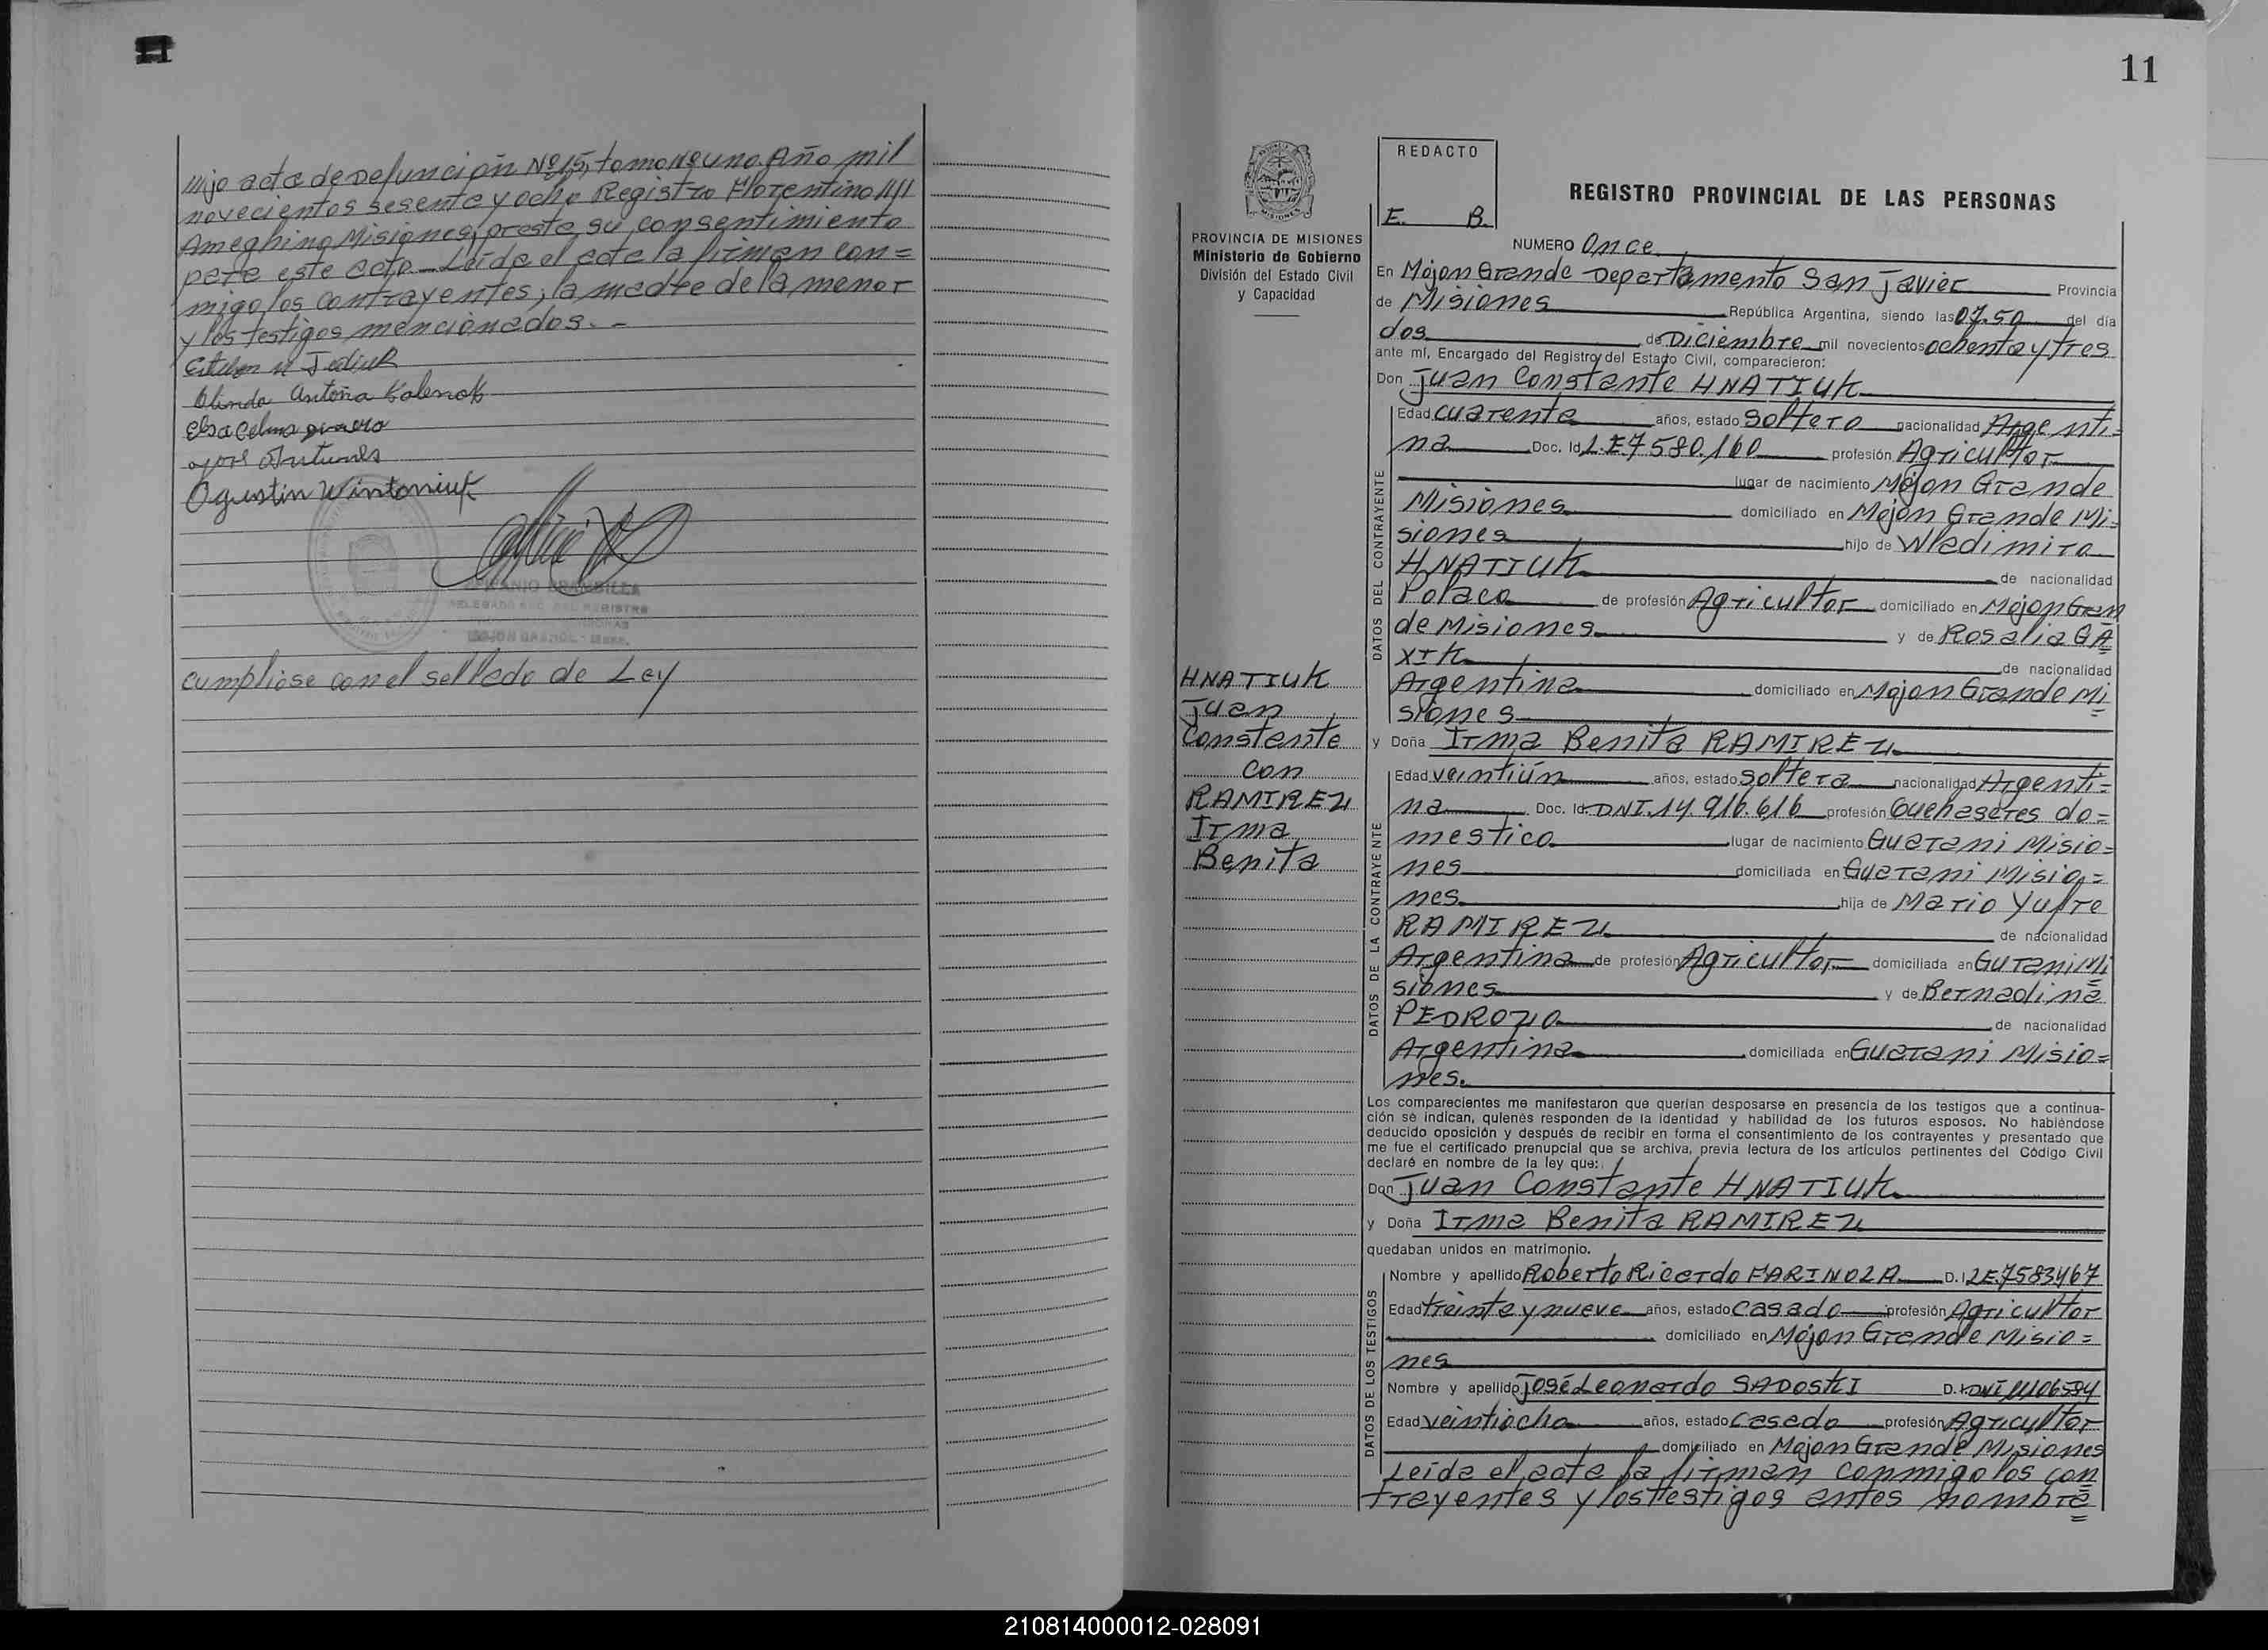 11
mijo acta de Defuncion Nº15, tomo Nº uno. Año mil
novecientos sesenta y ocho Registro Florentino
Ameghino Misiones, presta su consentimiento
para este acto. Leída el acta la firman con=
migo los contrayentes, la madre de la menor
y los testigos mencionados. -
Olinda Antonia
Elsa Celma
Agustin Wintoniuk
BRAMBILLA
cumpliose con el sellado de Ley
11
REDACTO
E. B.
REGISTRO PROVINCIAL DE LAS PERSONAS
MISIONES
PROVINCIA DE MISIONES
Ministerio de Gobierno
División del Estado Civil
y Capacidad
HNATIUK
Juan
Constante
con
RAMIREZ
Irma
Benita
NUMERO Once
En Mojon Grande Departamento San Javier Provincia
de Misiones República Argentina, siendo las 07.50 del día
dos de Diciembre mil novecientos ochenta y tres
ante mí, Encargado del Registro del Estado Civil, comparecieron:
Don Juan Constante HNATIUK
DATOS DEL CONTRAYENTE
Edad cuarenta años, estado soltero nacionalidad Argenti=
na Doc. Id L.E 7.580.160 profesión Agricultor
lugar de nacimiento Mojon Grande
Misiones domiciliado en Mojon Grande Mi=
siones hijo de Wladimiro
HNATIUK de nacionalidad
Polaca de profesión Agricultor domiciliado en Mojon Gran
de Misiones y de Rosalia GA
XIK de nacionalidad
Argentina domiciliado en Mojon Grande Mi
siones
y Doña Irma Benita RAMIREZ
DATOS DE LA CONTRAYENTE
Edad veintiún años, estado soltera nacionalidad Argenti=
na Doc. Id. DNI.14.916.616 profesión Quehaseres do=
mestico lugar de nacimiento Guarani Misio=
nes domiciliada en Guarani Misio=
nes hija de Mario Yufre
RAMIREZ de nacionalidad
Argentina de profesión Agricultor domiciliada en Gurani Mi
siones y de Bernadina
PEDROZO de nacionalidad
Argentina domiciliada en Guarani Misio=
nes.
Los comparecientes me manifestaron que querían desposarse en presencia de los testigos que a continua-
ción se indican, quienes responden de la identidad y habilidad de los futuros esposos. No habiéndose
deducido oposición y después de recibir en forma el consentimiento de los contrayentes y presentado que
me fue el certificado prenupcial que se archiva, previa lectura de los artículos pertinentes del Código Civil
declaré en nombre de la ley que:
Don Juan Constante HNATIUK
y Doña Irma Benita RAMIREZ
quedaban unidos en matrimonio.
DATOS DE LOS TESTIGOS
Nombre y apellido Roberto Ricardo FARINOLA D.I LE.7583467
Edad treinta y nueve años, estado casado profesión Agricultor
domiciliado en Mojon Grande Misio=
nes
Nombre y apellido José Leonardo SADOSKI D.I. DNI 11106594
Edad veintiocho años, estado casado profesión Agricultor
domiciliado en Mojon Grande Misiones
Leída el acta la firman conmigo los con
trayentes y los testigos antes nombra
210814000012-028091